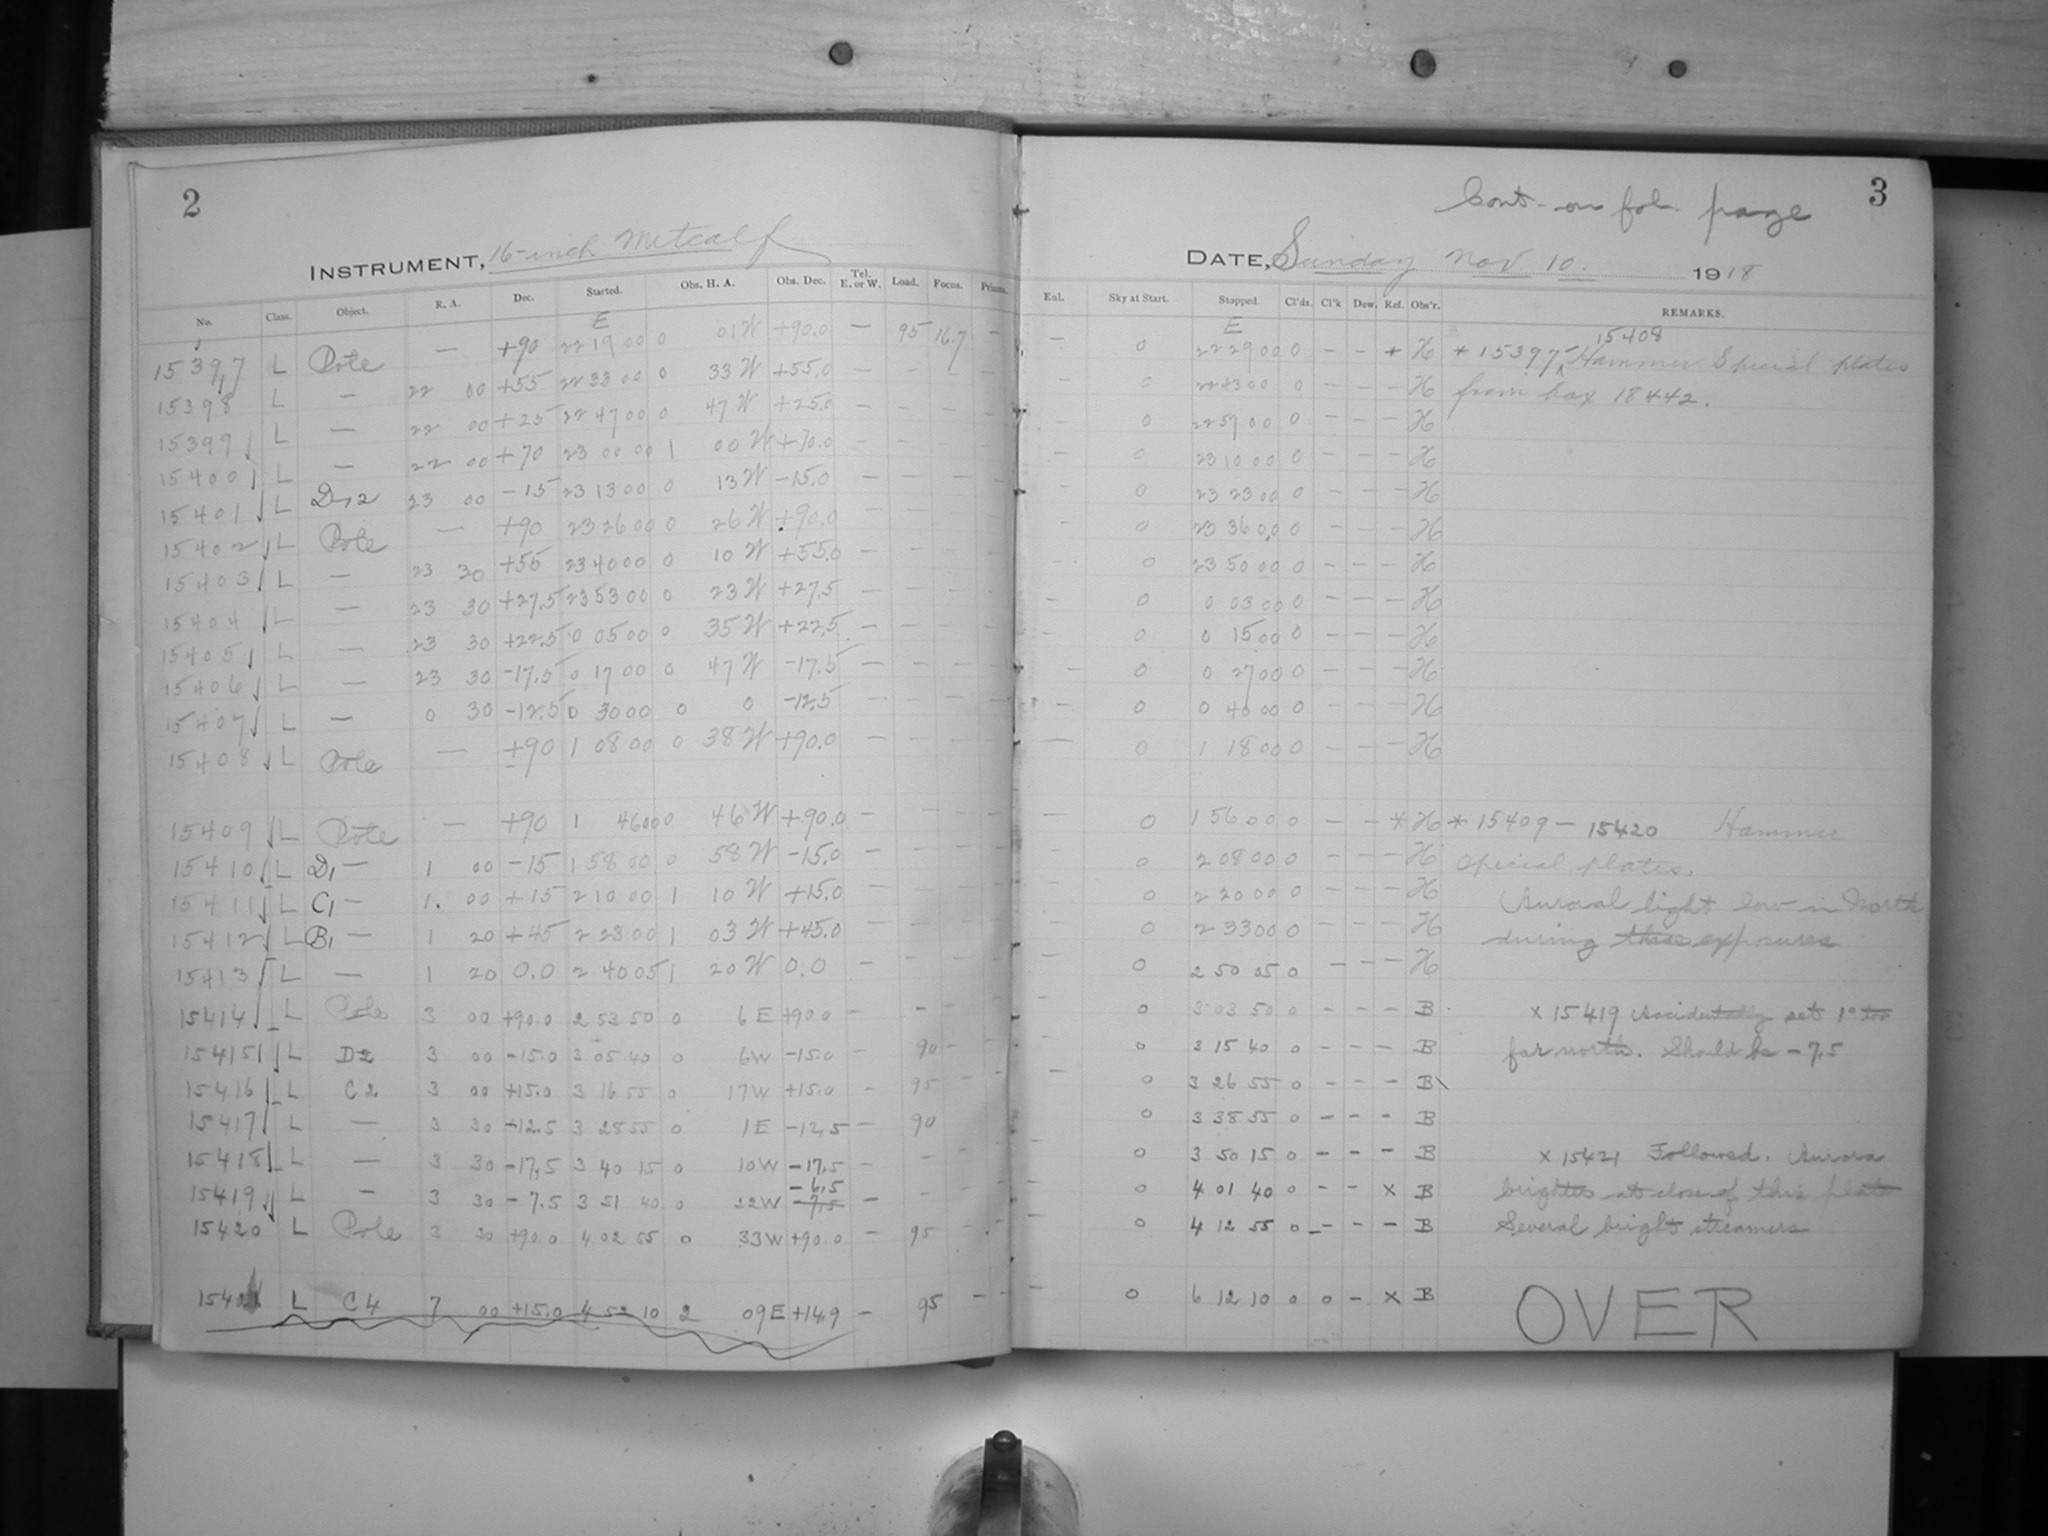 2
INSTRUMENT, 16-inch Metcalf
No. Class. Object. R. A. Dec. Started. Obs. H. A. Obs. Dec. Tel. E. or W. Load. Focus. Prisms.
E
15397 L Pole — +90 22 19 00 0 01 W +90.0 — 95 16.7 —
15398 L — 22 00 +55 22 33 00 0 33 W +55.0 — — — —
15399 L — 22 00 +25 22 47 00 0 47 W +25.0 — — — —
15400 L — 22 00 +70 23 00 00 1 00 W +70.0 — — — —
15401 L D12 23 00 -15 23 13 00 0 13 W -15.0 — — — —
15402 L Pole — +90 23 26 00 0 26 W +90.0 — — — —
15403 L — 23 30 +55 23 40 00 0 10 W +55.0 — — — —
15404 L — 23 30 +27.5 23 53 00 0 23 W +27.5 — — — —
15405 L — 23 30 +22.5 0 05 00 0 35 W +22.5 — — — —
15406 L — 23 30 -17.5 0 17 00 0 47 W -17.5 — — — —
15407 L — 0 30 -12.5 0 30 00 0 0 -12.5 — — — —
15408 L Pole — +90 1 08 00 0 38 W +90.0 — — — —
15409 L Pole — +90 1 46 00 0 46 W +90.0 — — — —
15410 L D1 — 1 00 -15 1 58 00 0 58 W -15.0 — — — —
15411 L C1 — 1. 00 +15 2 10 00 1 10 W +15.0 — — — —
15412 L B1 — 1 20 +45 2 23 00 1 03 W +45.0 — — — —
15413 L — 1 20 0.0 2 40 05 1 20 W 0.0 — — — —
15414 L Pole 3 00 +90.0 2 53 50 0 6 E +90.0 — — — —
15415 L D2 3 00 -15.0 3 05 40 0 6W -15.0 — 90 — —
15416 L C2 3 00 +15.0 3 16 55 0 17W +15.0 — 95 — —
15417 L — 3 30 -12.5 3 28 55 0 1E -12.5 — 90
15418 L — 3 30 -17.5 3 40 15 0 10W -17.5 — — — —
-6.5
15419 L — 3 30 -7.5 3 51 40 0 22W -7.5 — — — —
15420 L Pole 3 30 +90.0 4 02 55 0 33W +90.0 — 95 — —
15421 L C4 7 00 +15.0 4 52 10 2 09E +14.9 — 95 — —
3
Cont. on fol. page
DATE, Sunday Nov 10. 1918
Eul. Sky at Start. Stopped. Cl'ds. Cl'k Dew. Ref. Obs'r. REMARKS.
E
15408
— 0 22 29 00 0 — — * H * 15397 - ^ Hammer Special plates
— 0 22 43 00 0 — — — H from box 18442.
— 0 22 57 00 0 — — — H
— 0 23 10 00 0 — — — H
— 0 23 23 00 0 — — — H
— 0 23 36 00 0 — — — H
— 0 23 50 00 0 — — — H
— 0 0 03 00 0 — — — H
— 0 0 15 00 0 — — — H
— 0 0 27 00 0 — — — H
— 0 0 40 00 0 — — — H
— 0 1 18 00 0 — — — H
— 0 1 56 00 0 — — * H * 15409 — 15420 Hammer
— 0 2 08 00 0 — — — H special plates.
— 0 2 20 00 0 — — — H Auroral light low in North
— 0 2 33 00 0 — — — H during these exposures
— 0 2 50 05 0 — — — H
— 0 3 03 50 0 — — — B x 15419 Accidentally set 1° too
— 0 3 15 40 0 — — — B far north. Should be -7.5
— 0 3 26 55 0 — — — B
0 3 38 55 0 — — — B
— 0 3 50 15 0 — — — B x 15421 Followed. Aurora
— 0 4 01 40 0 — — x B brighter at close of this plate
— 0 4 12 55 0 — — — B Several bright streamers
— 0 6 12 10 0 0 — x B OVER